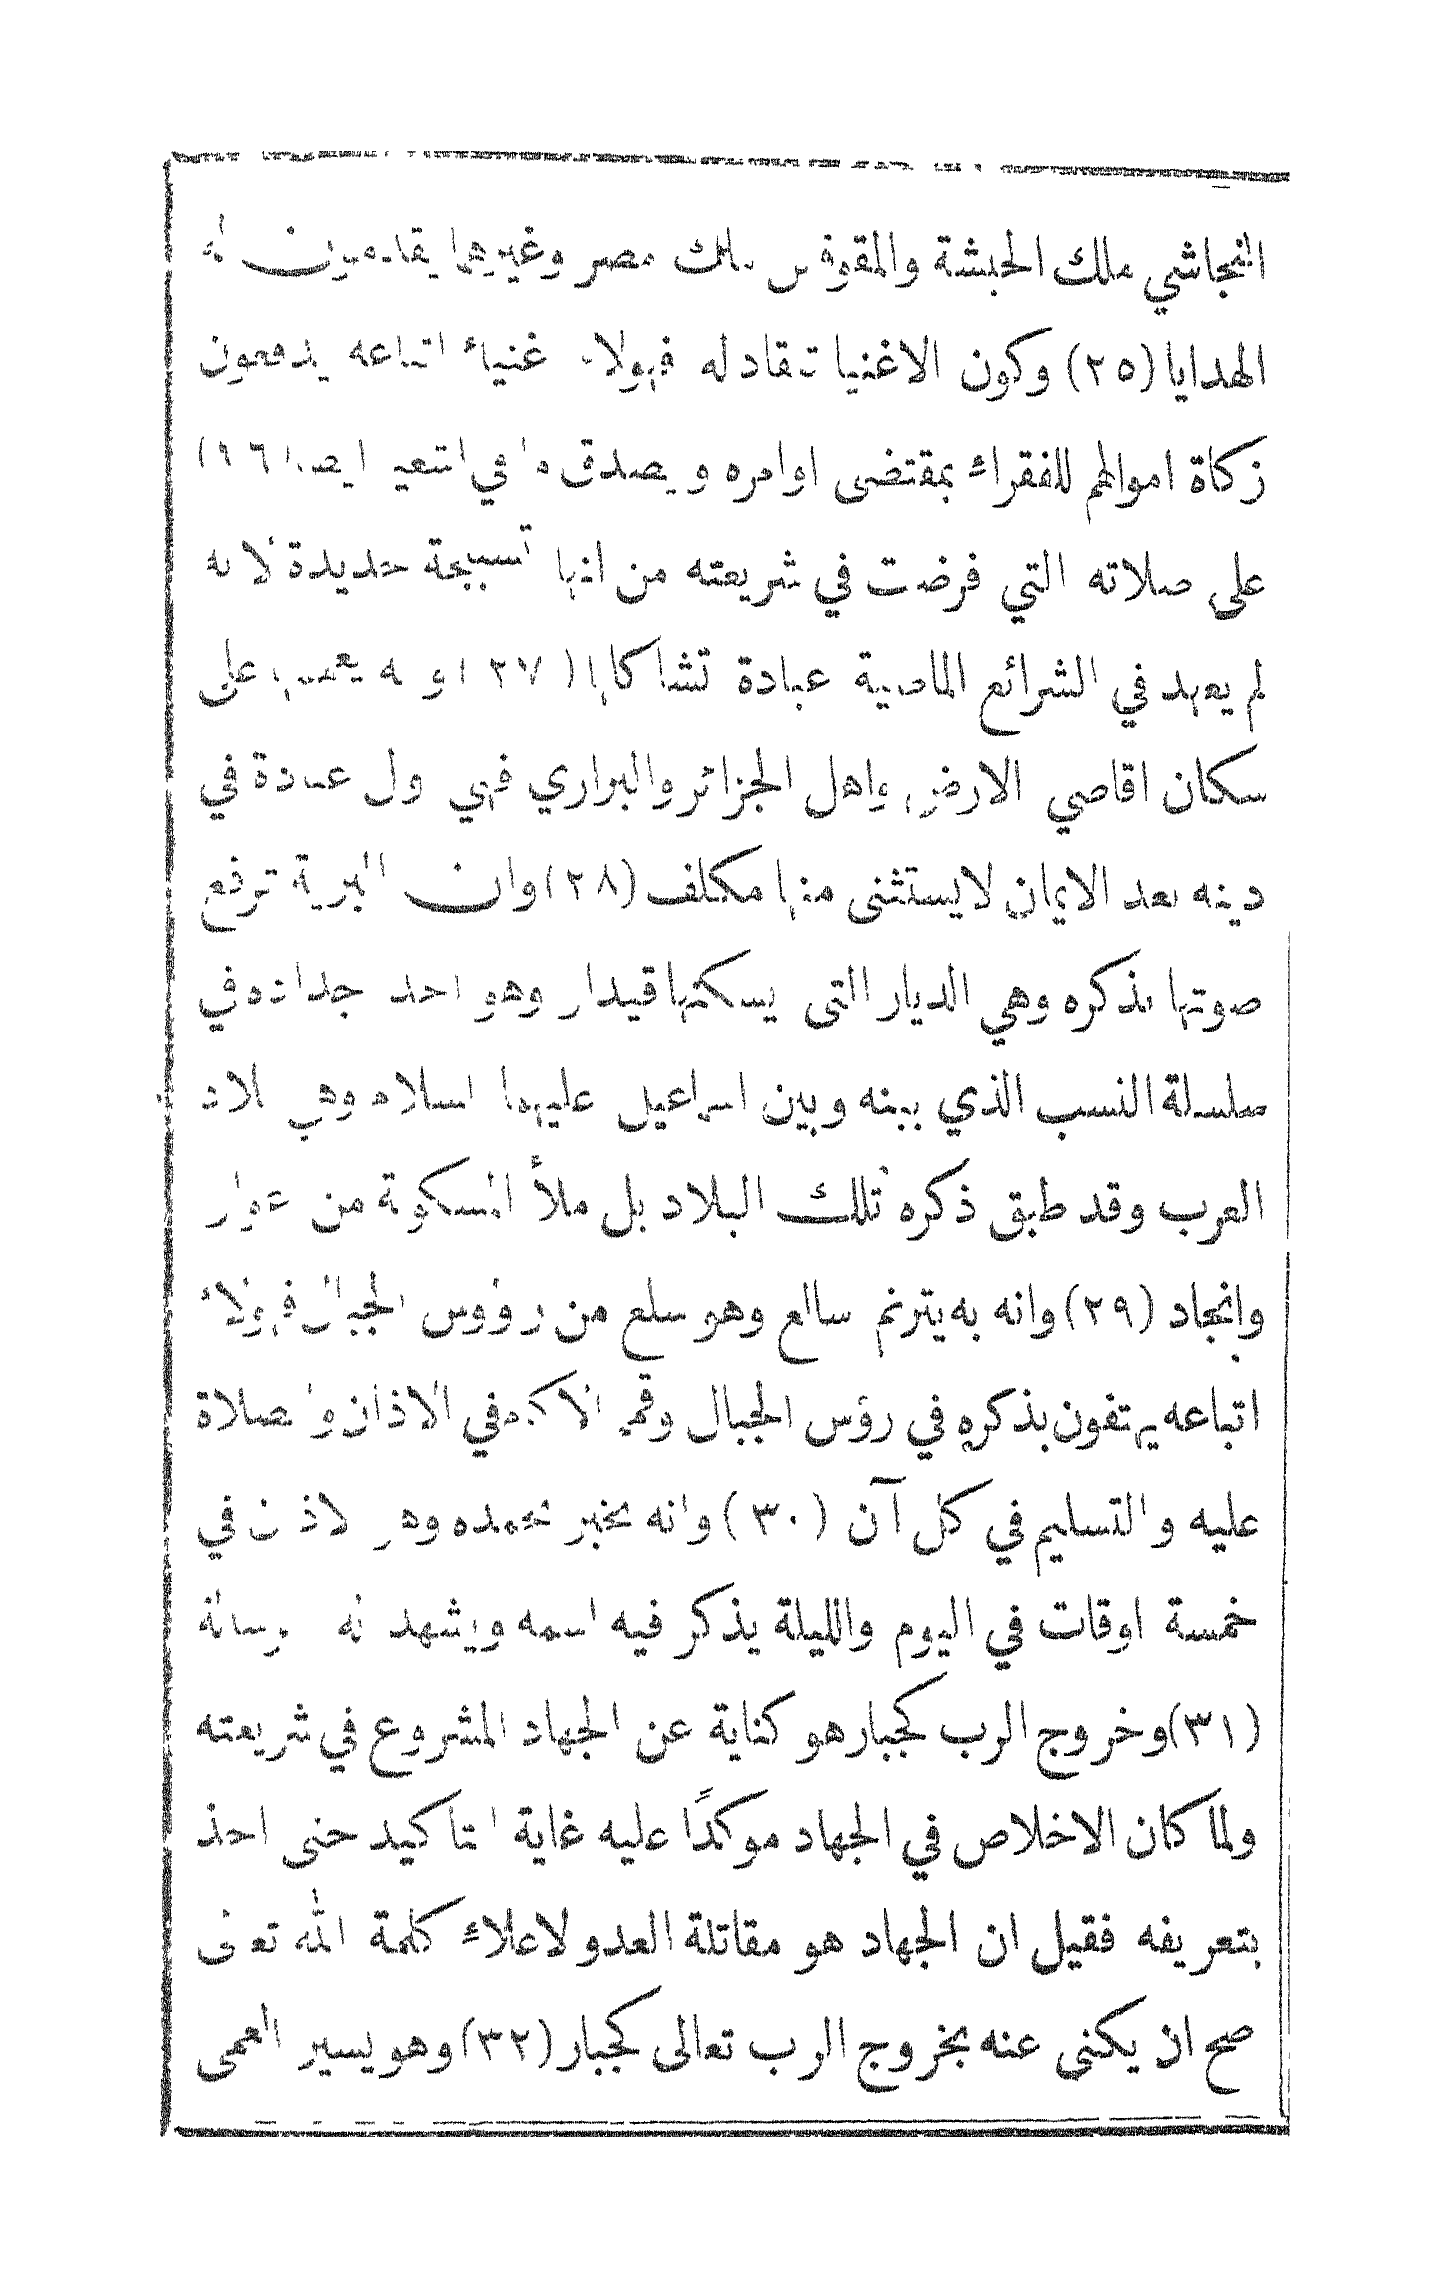 النجاشي ملك الحبشة والمقوقس ملك مصر وغيرهما يقدمون له
الهدايا (٢٥) وكون الاغنيا تنقاد له فهولاء غنياء اتباعه يدفعون
زكاة اموالهم للفقراء بمقتضى اوامره ويصدق ما في اشعيا ايضا (٢٦)
على صلاته التي فرضت في شريعته من انها تسبيحة جديدة لانه
لم يعهد في الشرائع الماضية عبادة تشاكلها (٢٧) و على
سكان اقاصي الارض واهل الجزائر والبراري فهي ول عبادة في
دينه بعد الايمان لايستثنى منها مكلف (٢٨) وان البرية ترفع
صوتها بذكره وهي الديار التي يسكنها قيدار وهو احد جداده في
سلسلة النسب الذي بينه وبين اسماعيل عليهما السلام وهي بلاد
العرب وقد طبق ذكره تلك البلاد بل ملأ المسكونة من غوار
وانجاد (٢٩) وانه به يترنم سالع وهو سلع من رؤوس الجبال فهولاء
اتباعه يهتفون بذكره في رؤس الجبال وقمم الاكم في الاذان والصلاة
عليه والتسليم في كل آن (٣٠) وانه يخبر بحمده وهو لاذان في
خمسة اوقات في اليوم والليلة يذكر فيه اسمه ويشهد له برسالة
(٣١) وخروج الرب كجبار هو كناية عن الجهاد المشروع في شريعته
ولما كان الاخلاص في الجهاد موكدًا عليه غاية التاكيد حتى اخذ
بتعريفه فقيل ان الجهاد هو مقاتلة العدو لاعلاء كلمة الله تعالى
صح ان يكنى عنه بخروج الرب تعالى كجبار (٣٢) وهو يسير العمى